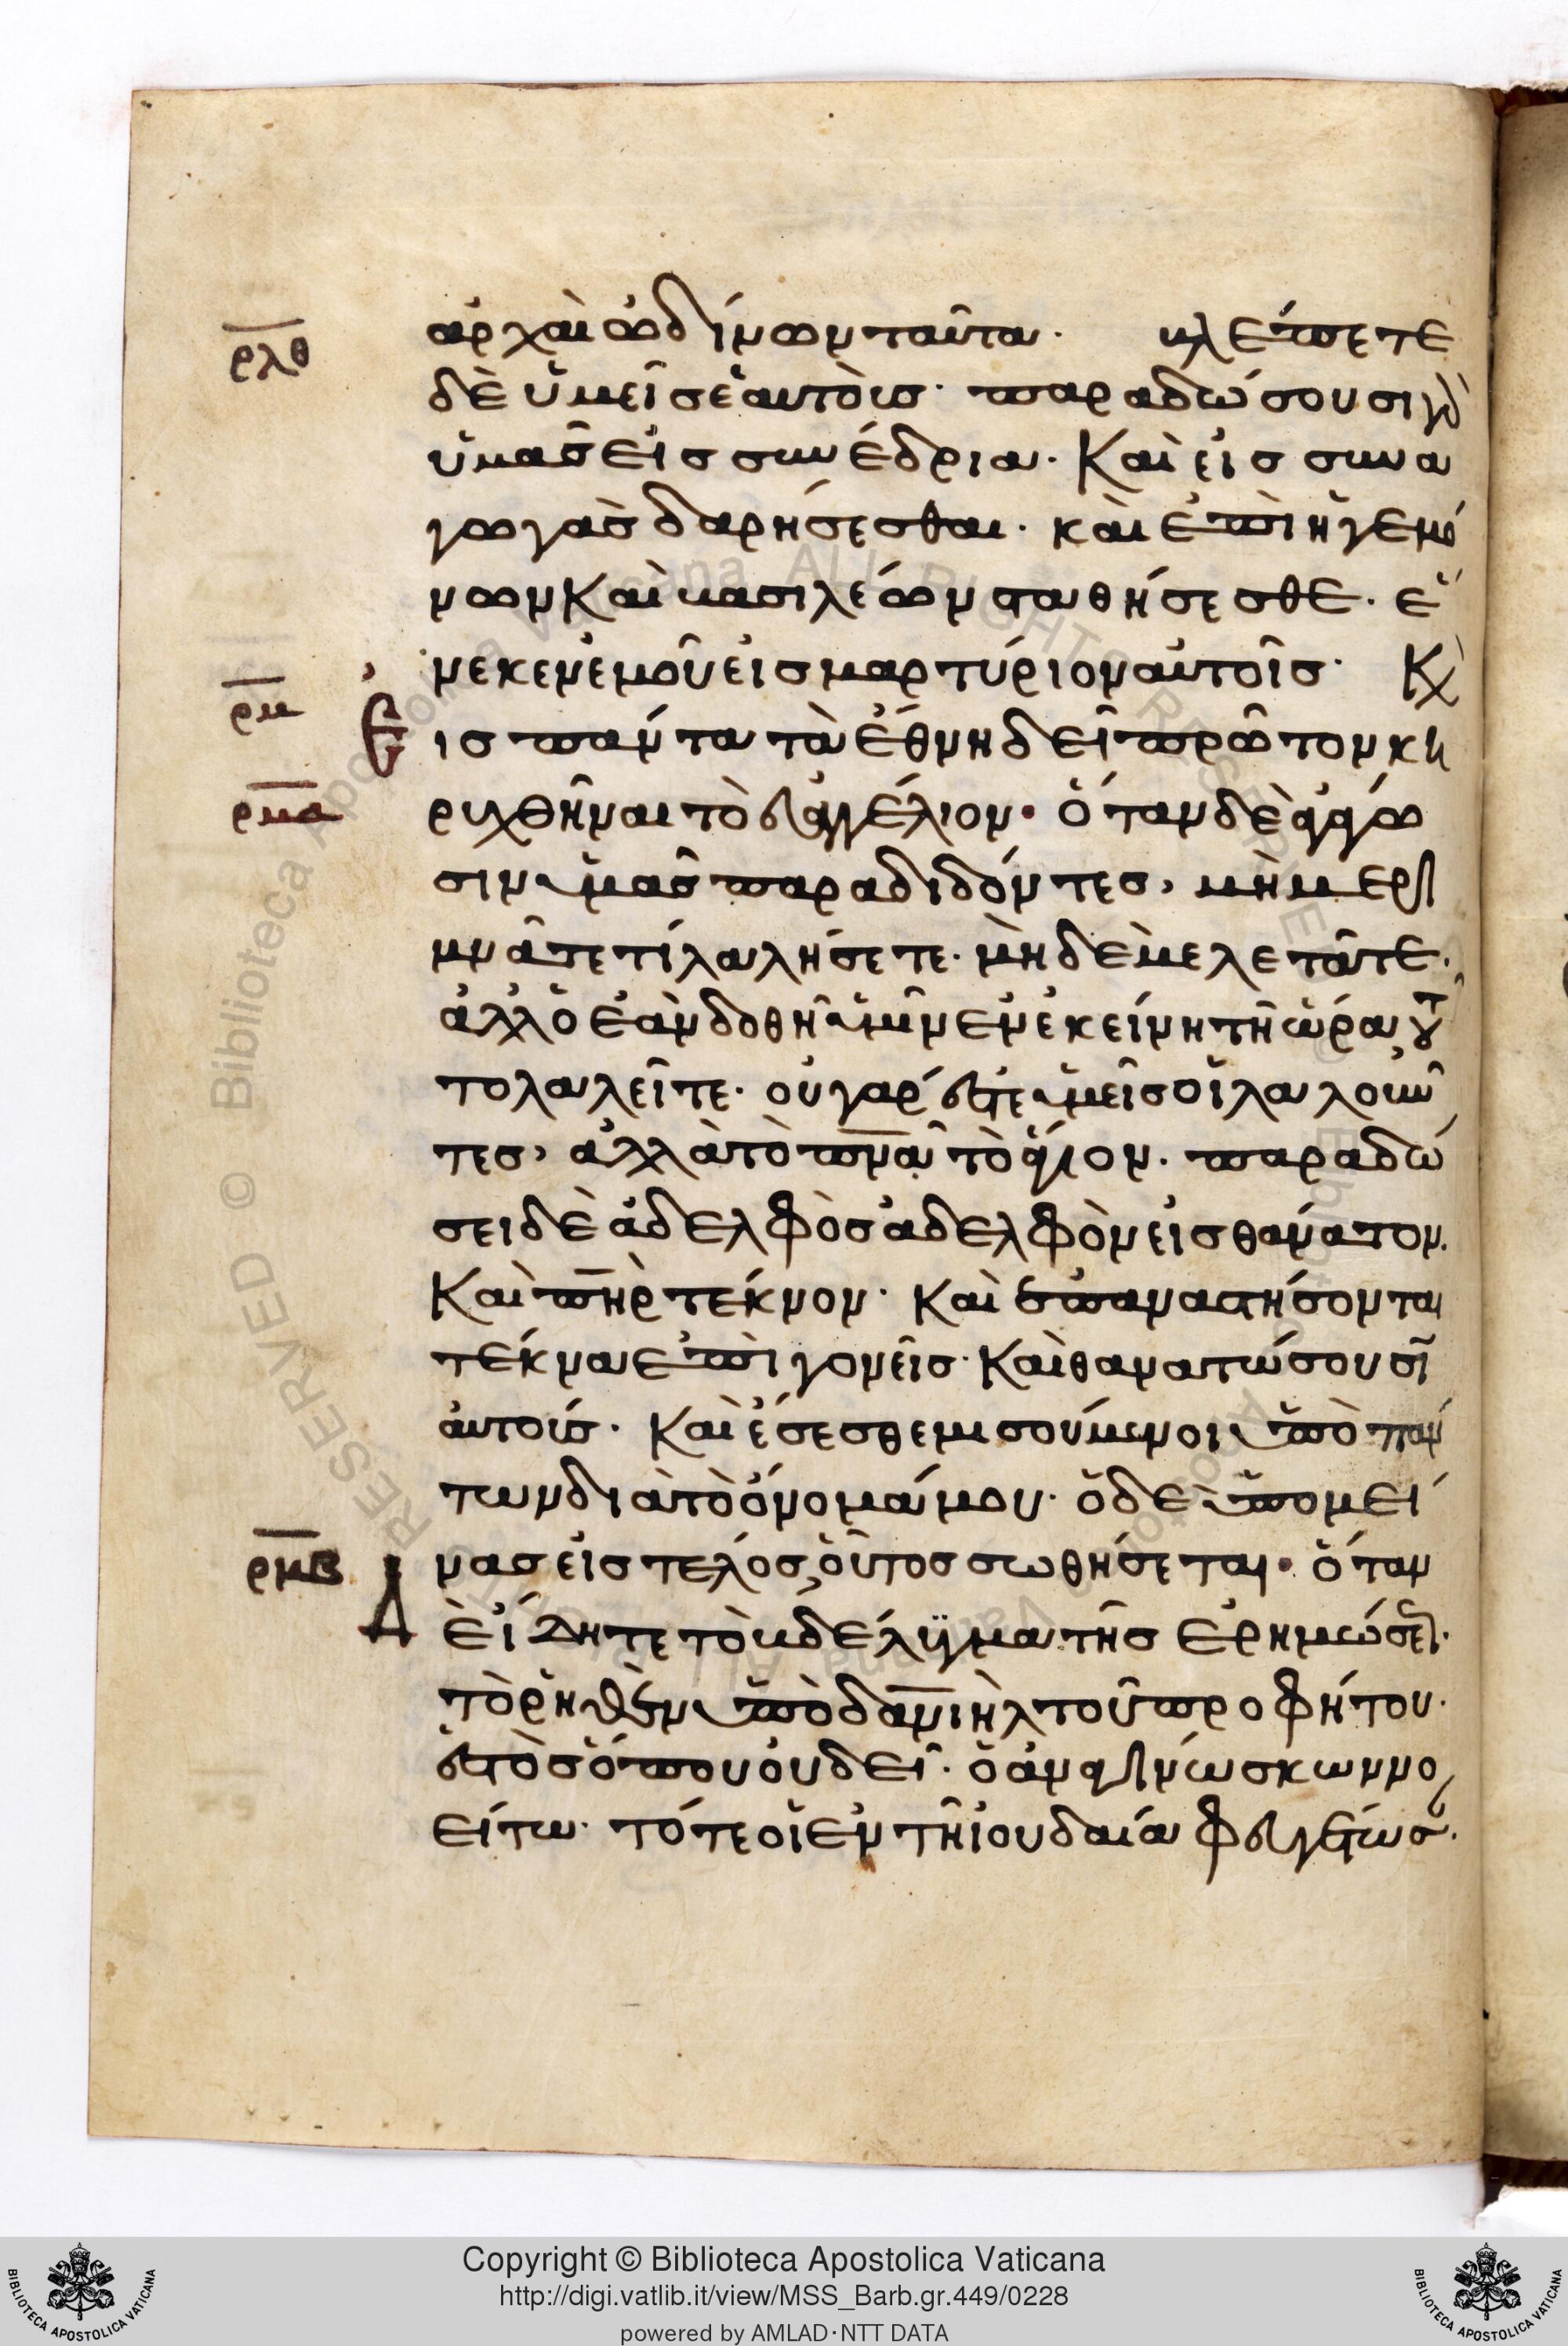 ρλθ
ἀρχαὶ ὠδίνων ταῦτα· βλέπετε
δὲ ὑμεῖς ἑαυτοὺς· παραδώσουσι γὰρ
ὑμᾶς εἰς συνέδρια· Καὶ εἰς συνα
γωγὰς δαρήσεσθαι· καὶ ἐπὶ ἡγεμό
νων Καὶ βασιλέων σταθήσεσθε· ἕ
νεκεν ἐμοῦ εἰς μαρτύριον αὐτοῖς· Κ(αὶ)
ρμ
Εἰς πάντα τὰ ἔθνη δεῖ πρῶτον κη
ρμα
ρυχθῆναι τὸ εὐαγγέλιον· ὅταν δὲ ἀγάγω
σιν ὑμᾶς παραδιδόντες, μὴ μερι
μνᾶτε τί λαλήσετε· μὴ δὲ μελετᾶτε·
ἀλλ' ὃ ἐὰν δοθῆ ὑμῖν ἐν ἐκείνη τῆ ὥρα τοῦ
το λαλεῖτε· οὐ γάρ ἐστε ὑμεῖς οἱ λαλοῦν
τες, ἀλλὰ τὸ πνα τὸ ἅγιον· παραδώ
σει δὲ ἀδελφὸς ἀδελφὸν εἰς θάνατον.
Καὶ πηρ τέκνον· Καὶ ἐπαναστήσονται
τέκνα ἐπὶ γονεῖς· Καὶ θανατώσουσιν
αὐτούς· Καὶ ἔσεσθε μισούμενοι ὑπὸ πάν
των διὰ τὸ ὄνομά μου· ὁ δὲ ὑπομεί
ρμβ
νας εἰς τέλος, οὗτος σωθήσεται· ὅταν
Δὲ ἴδητε τὸ βδέλυγμα τῆς ἐρημώσεως·
τὸ ῥηθὲν ὑπὸ δανιὴλ τοῦ προφήτου·
ἑστὸς ὅπου οὐ δεῖ· ὁ ἀναγινώσκων νο
είτω· τότε οἱ ἐν τῆ ἰουδαία φευγέτωσαν·
Copyright © Biblioteca Apostolica Vaticana
http://digi.vatlib.it/view/MSS_Barb.gr.449/0228
powered by AMLAD·NTT DATA
BIBLIOTECA APOSTOLICA VATICANA
BIBLIOTECA APOSTOLICA VATICANA